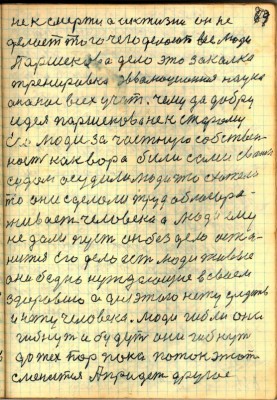 89
не к смерти а к жизни он не
делает того чего делают все люди
Паршекова дело это закалка
тренировка эвалюционная наука
она нас всех учит. чему да добру
идея паршекова не к старому
Его люди за частную собствен-
ность как вора били сами своим
судом осудили люди это сказали
то они сделали труд облагора-
живает человека а люди ему
не дали пусть он без дело оста-
нится Его дело есть люди живые
они бедно нуждающие в своем
здоровию а для этого нету средств
и нету человека. люди гибли они
гибнут и будут они гибнут
до тех пор пока поток этот
сменится А придет другое